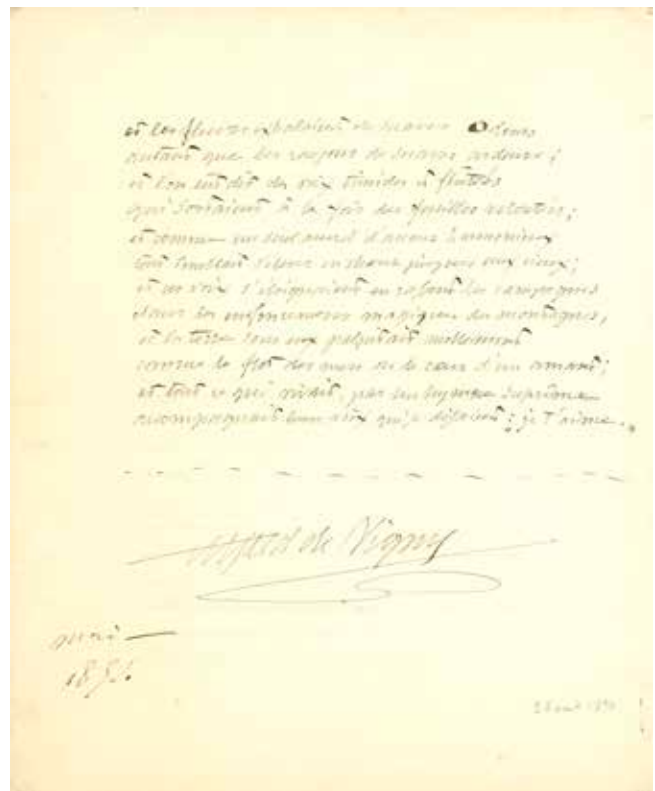 et les fleurs exhalaient de suaves Odeurs
autant que les rayons de suaves ardeurs;
et l'on eut dit des voix timides et flûtées
qui sortaient à la fois des feuilles veloutées;
et comme un seul accord d'accens harmonieux
tout semblait s'élever en chœur jusques aux cieux;
et ces voix s'éloignaient en rasant les campagnes
dans les enfoncemens magiques des montagnes,
et la terre sous eux palpitait mollement
comme le flot des mers ou le cœur d'un amant;
et tout ce qui vivait, par un hymne suprême
accompagnait leurs voix qui se disaient : je t'aime.
Alfred de Vigny
mai